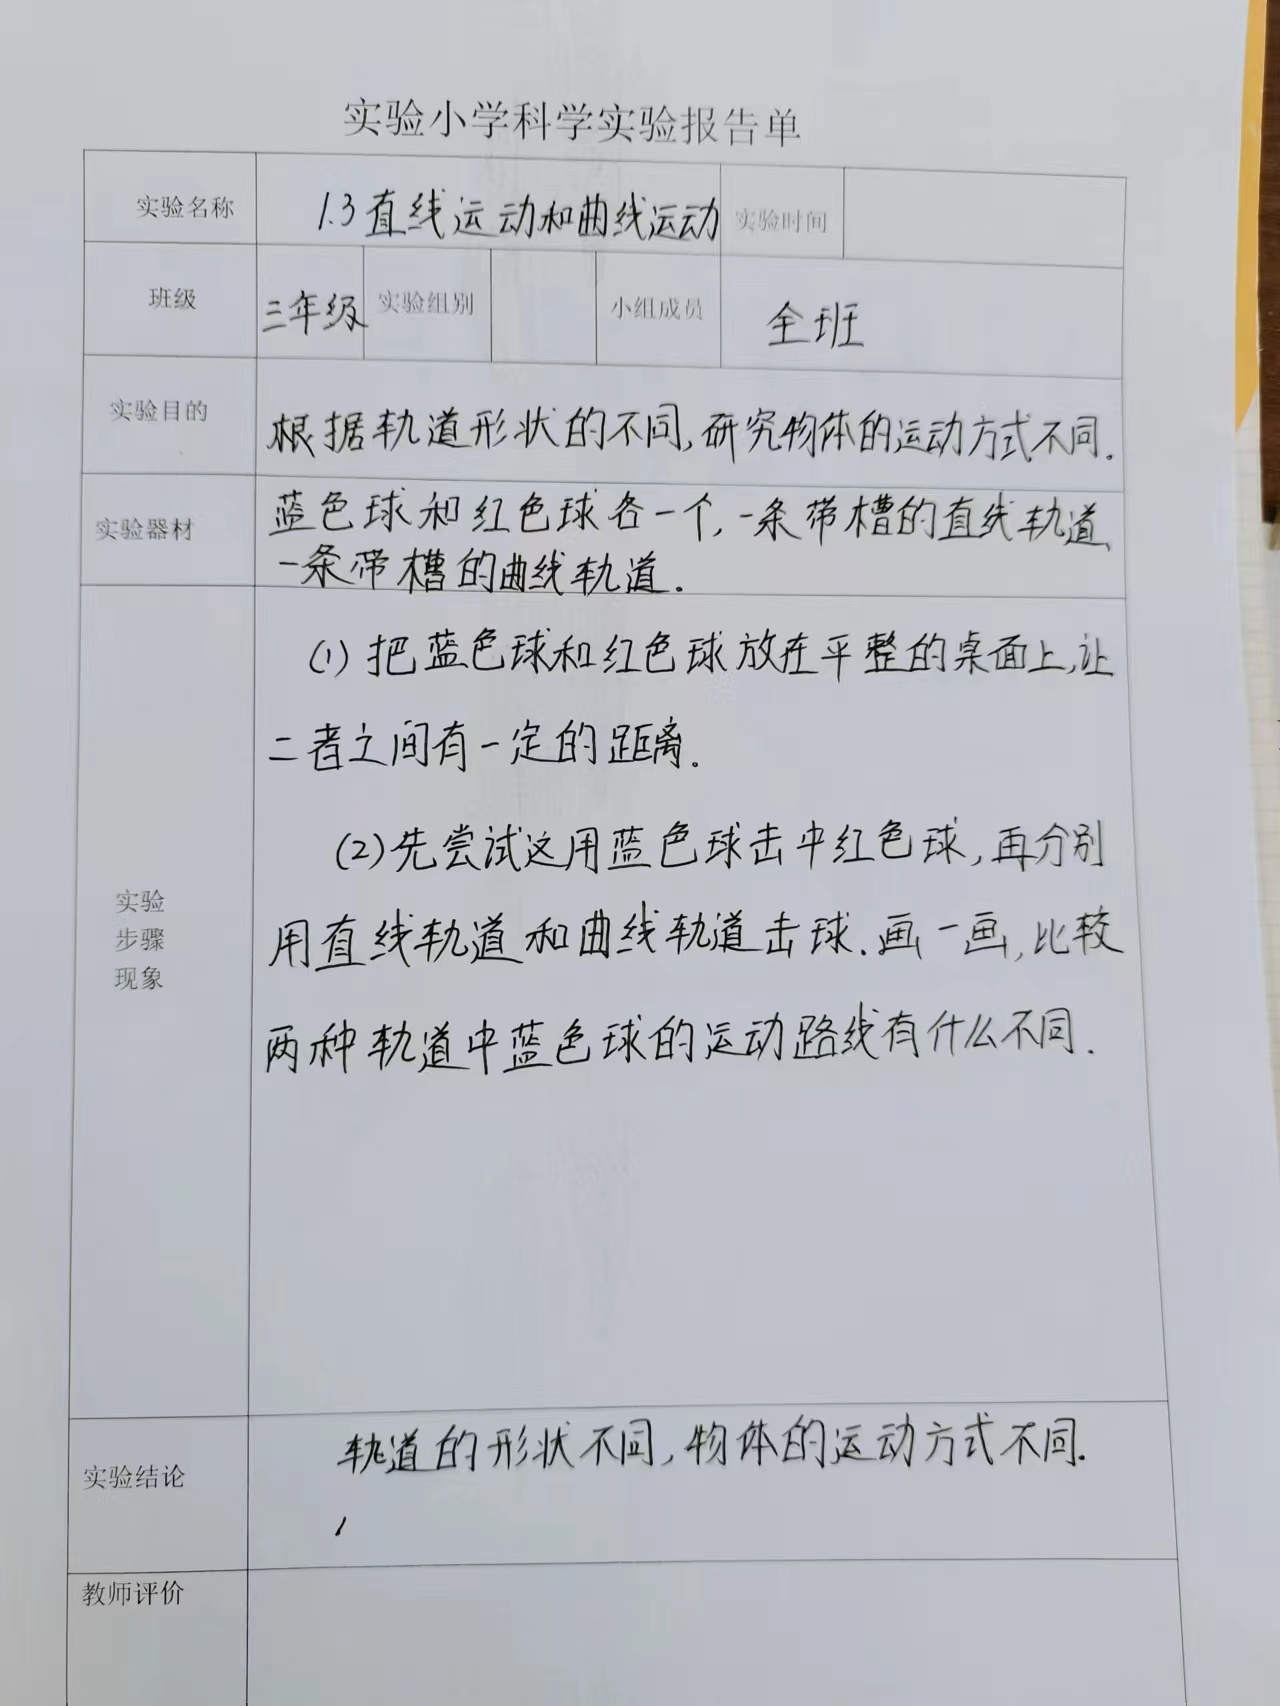 实验小学科学实验报告单
实验名称 1.3直线运动和曲线运动 实验时间
班级 三年级 实验组别 小组成员 全班
实验目的 根据轨道形状的不同,研究物体的运动方式不同.
实验器材 蓝色球和红色球各一个,一条带槽的直线轨道、
一条带槽的曲线轨道.
(1)把蓝色球和红色球放在平整的桌面上,让
二者之间有一定的距离.
(2)先尝试这用蓝色球击中红色球,再分别
实验
步骤
现象
用直线轨道和曲线轨道击球.画一画,比较
两种轨道中蓝色球的运动路线有什么不同.
实验结论 轨道的形状不同,物体的运动方式不同.
教师评价